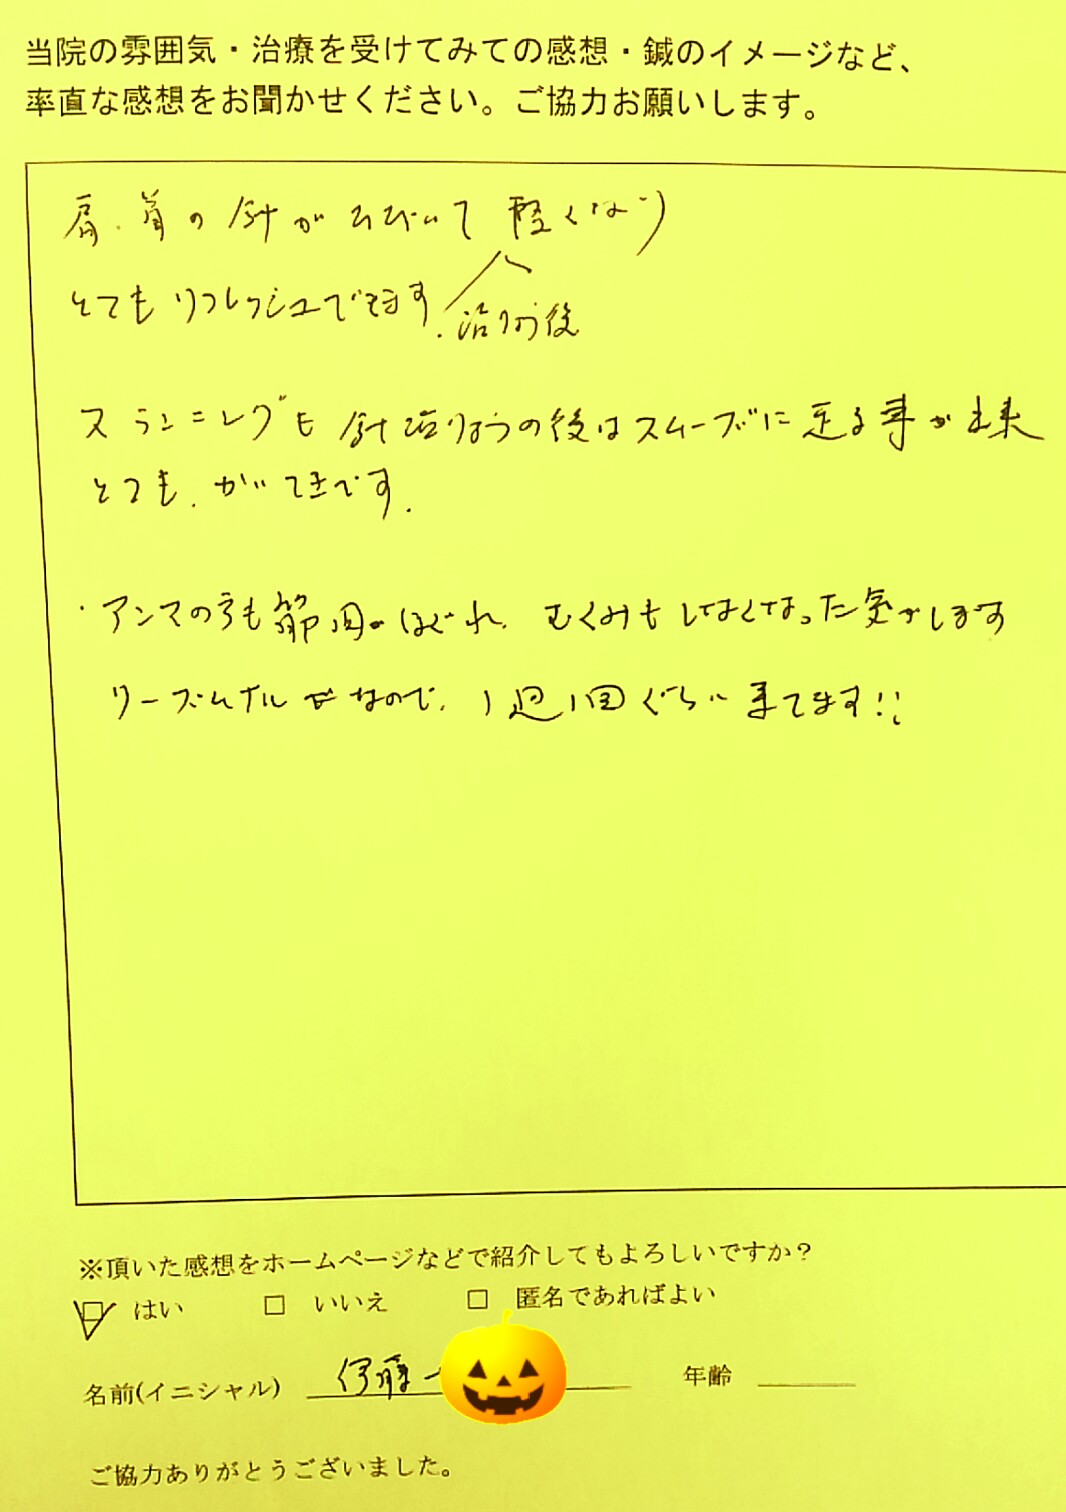 当院の雰囲気・治療を受けてみての感想・鍼のイメージなど、
率直な感想をお聞かせください。ご協力お願いします。
肩.首の針がひびいて軽くなり
とてもリフレッシュできます.
治りょう後
又ランニングも針治りょうの後はスムーズに走る事が出来
とても.
です.
・アンマの方も筋肉がほぐれ.むくみもしなくなった気がします
リーズムナルなので.1週1回ぐらい来てます!!
※頂いた感想をホームページなどで紹介してもよろしいですか？
□ はい □ いいえ □ 匿名であればよい
名前(イニシャル) 伊藤 年齢
ご協力ありがとうございました。